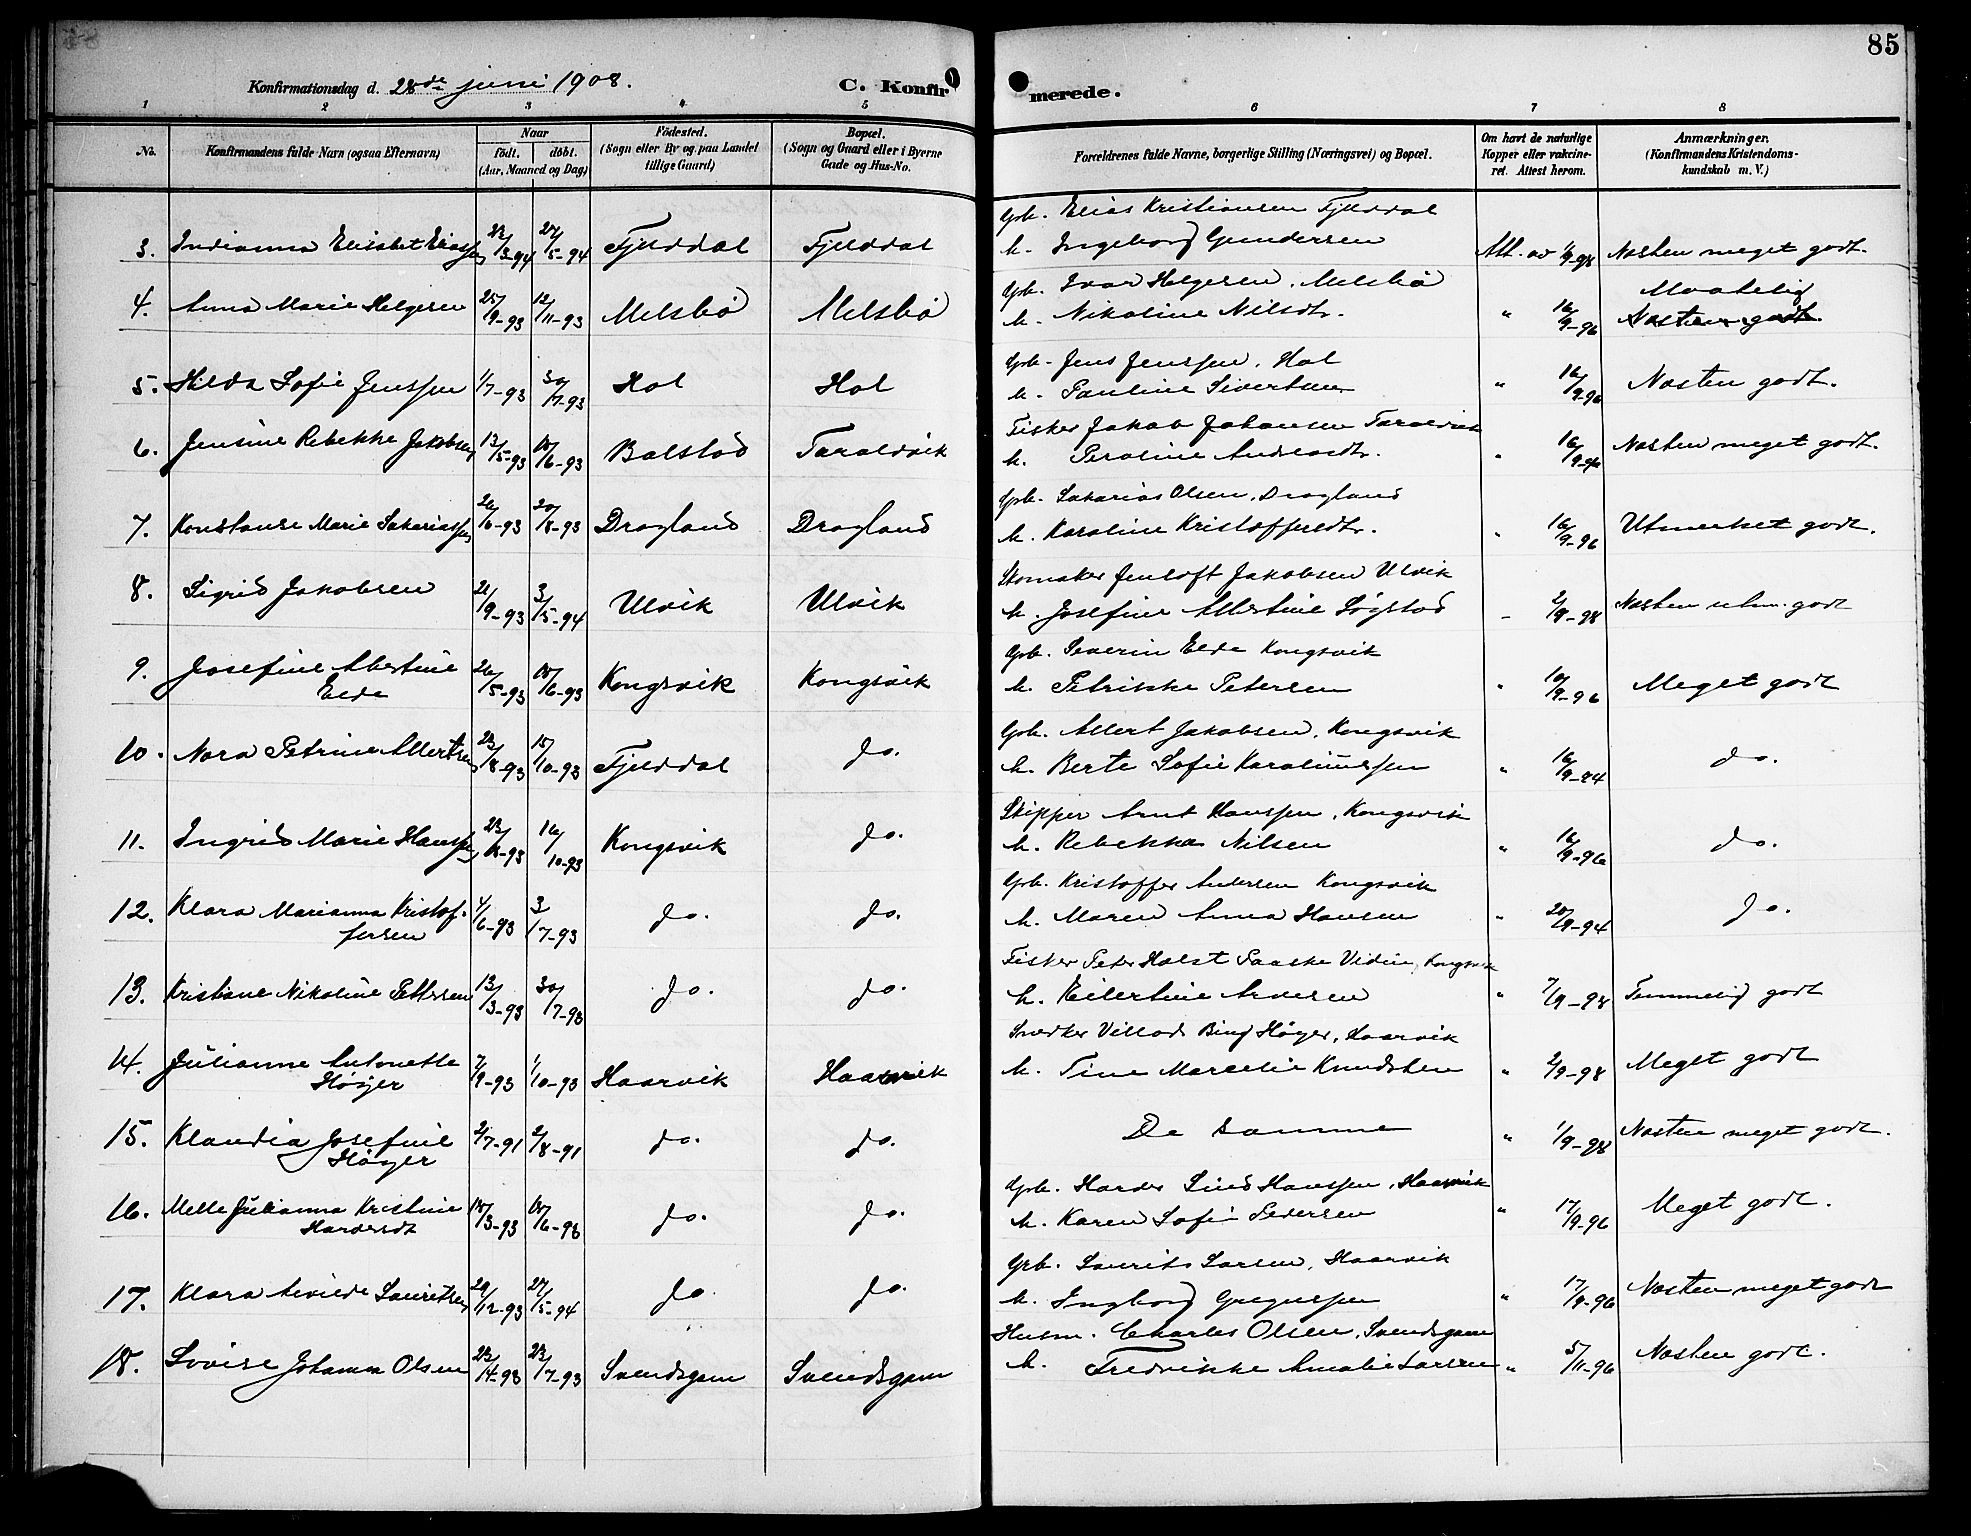 85
Konfirmationsdag d. 28de juni 1908. C. Konfirmerede.
1 2 3 4 5 6 7 8
No. Konfirmandens fulde Navn (ogsaa Efternavn) Naar født. døbt. (Aar, Maaned og Dag) Fødested. (Sogn eller By og paa Landet tillige Gaard) Bopæl. (Sogn og Gaard eller i Byerne Gade og Hus-No. Forældrenes fulde Navne, borgerlige Stilling (Næringsvei) og Bopæl. Om havt de naturlige Kopper eller vakcineret. Attest herom. Anmærkninger. (Konfirmandens Kristendomskundskab m. V.)
Gbr. Elias Kristiansen Fjelddal
3. Indianna Elisabet Eliassen /3-94 27/5-94 Fjelddal Fjelddal h. Ingeborg Gundersen Att. av 1/9-98 Næsten meget godt.
Gbr. Ivar Helgesen, Melsbø Maadelig
4. Anna Marie Helgesen 25/9-93 12/11-93 Melsbø Melsbø h. Nikoline Nilsdt. " 16/9-96 Næsten godt.
Gbr. Jens Jenssen, Hol
5. Hilda Sofie Jenssen 1/7-93 30/7-93 Hol Hol h. Pauline Sivertsen " 16/9-96 Næsten godt.
Fisker Jakob Johansen Taraldvik
6. Jensine Rebekke Jakobsen 13/5-93 18/6-93 Balstad Taraldvik h. Peroline Andreasdt. " 16/9-96 Næsten meget godt.
Gbr. Sakarias Olsen, Dragland
7. Konstanse Marie Sakariassen 26/6-93 20/8-93 Dragland Dragland h. Karoline Kristoffersdt. " 16/9-96 Utmerket godt.
Skomaker Jentoft Jakobsen Ulvik
8. Sigrid Jakobsen 21/9-93 3/5-94 Ulvik Ulvik h. Josefine Albertine Søgstad - 2/9-98 Næsten utm. godt
Gbr. Severin Elde Kongsvik
9. Josefine Albertine Elde 26/5-93 18/6-93 Kongsvik Kongsvik h. Petrikke Petersen " 16/9-96 Meget godt
Gbr. Albert Jakobsen, Kongsvik
10. Nora Petrine Albertsen 23/8-93 15/10-93 Fjelddal do. h. Berte Sofie Karoliussen " 16/9-94 do.
Skipper Arnt Hanssen, Kongsvik
11. Ingrid Marie Hanssen 23/8-93 16/10-93 Kongsvik do. h. Rebekka Nilsen " 16/9-96 do.
Gbr. Kristoffer Andersen Kongsvik
12. Klara Marianna Kristoffersen 4/6-93 3/7-93 do. do. h. Maren Anna Hansen " 20/9-94 do.
Fisker Peter Holst Paaske Vidin, Kongsvik
13. Kristiane Nikoline Pettersen 13/3-93 30/7-93 do. do. h. Eilertine Arvesen " 7/9-98 Temmelig godt
Snedker Villads Bing Høyer, Haarvik
14. Julianne Antonette Høyer 7/9-93 1/10-93 Haarvik Haarvik h. Tine Marcelie Knudsten " 2/9-98 Meget godt
15. Klaudia Josefine Høyer 2/7-91 2/8-91 do. do. De samme " 1/9-98 Næsten meget godt.
Gbr. Harder Lind Hanssen, Haarvik
16. Melle Julianna Kristine Hardersdt 18/3-93 18/6-93 do. do. h. Karen Sofie Pedersen " 17/9-96 Meget godt.
Gbr. Laurits Larsen, Haarvik
17. Klara Lauritsen 29/12-93 27/5-94 do. do. h. Ingborg Gregussen " 17/9-96 Næsten meget godt
Husm. Charles Olsen, Svendsgam
18. Lovise Johanna Olsen 23/4-93 23/7-93 Svendsgam Svendsgam h. Fredrikke Amalie Larsen " 5/11-96 Næsten godt.